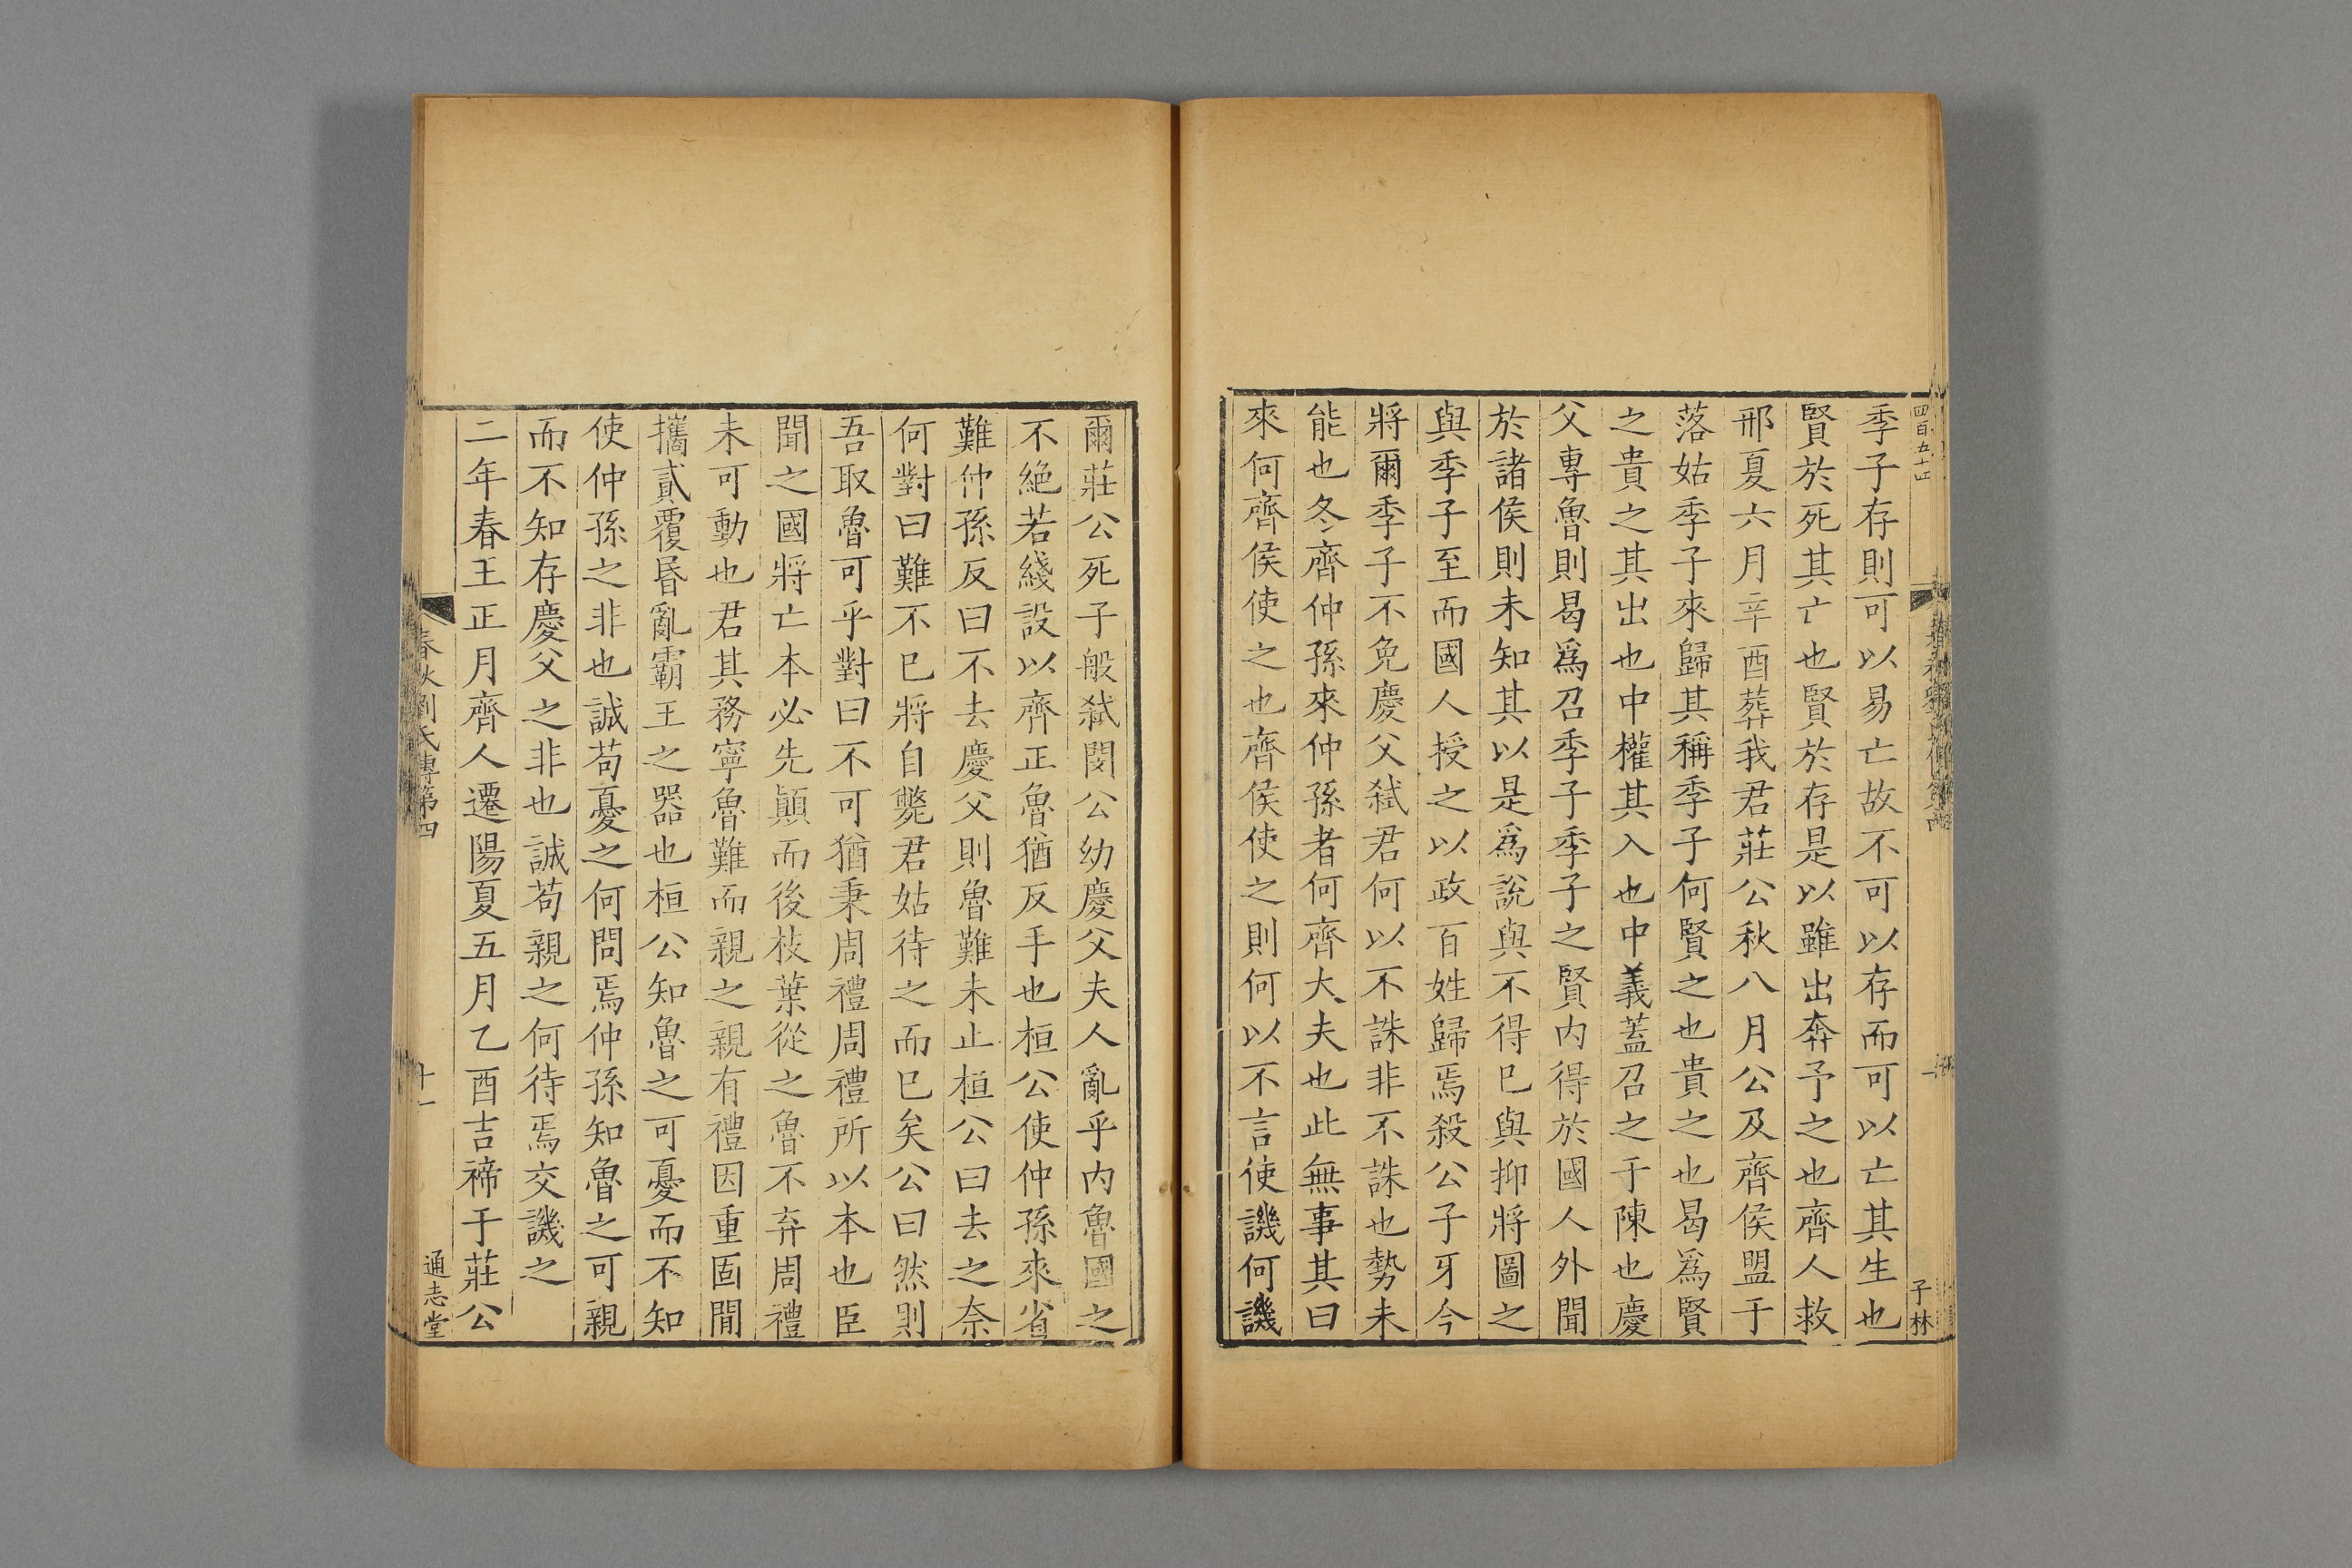 四百五十四
季子存則可以易亡故不可以存而可以亡其生也
賢於死其亡也賢於存是以雖出奔予之也齊人救
邢夏六月辛酉葬我君莊公秋八月公及齊侯盟于
落姑季子來歸其稱季子何賢之也貴之也曷爲賢
之貴之其出也中權其入也中義蓋召之于陳也慶
父專魯則曷爲召季子季子之賢内得於國人外聞
於諸侯則未知其以是爲説與不得已與抑將圖之
與季子至而國人授之以政百姓歸焉殺公子牙今
將爾季子不免慶父弑君何以不誅非不誅也勢未
能也冬齊仲孫來仲孫者何齊大夫也此無事其曰
來何齊侯使之也齊侯使之則何以不言使譏何譏
子林
爾莊公死子般弑閔公幼慶父夫人亂乎内魯國之
不絶若綫設以齊正魯猶反手也桓公使仲孫來省
難仲孫反曰不去慶父則魯難未止桓公曰去之奈
何對曰難不已將自斃君姑待之而已矣公曰然則
吾取魯可乎對曰不可猶秉周禮周禮所以本也臣
聞之國將亡本必先顛而後枝葉從之魯不弃周禮
未可動也君其務寧魯難而親之親有禮因重固閒
攜貳覆昬亂霸王之器也桓公知魯之可憂而不知
使仲孫之非也誠苟憂之何問焉仲孫知魯之可親
而不知存慶父之非也誠苟親之何待焉交譏之
二年春王正月齊人遷陽夏五月乙酉吉禘于莊公
春秋劉氏傳第四
十一
通志堂